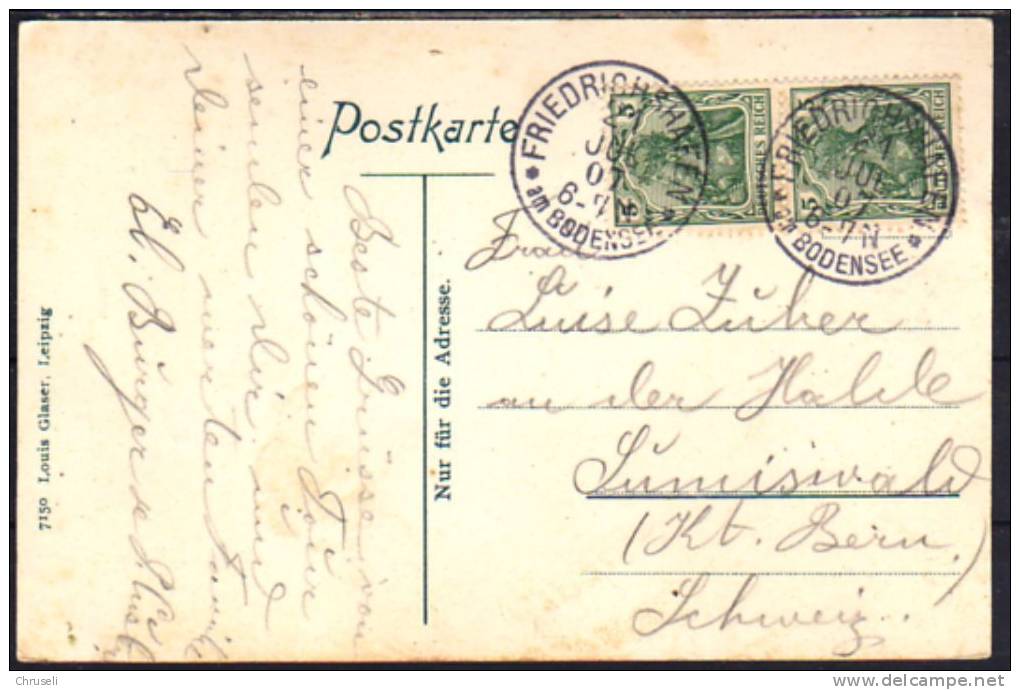 Postkarte
FRIEDRICHSHAFEN
21
JUL
07
6-7N
* am BODENSEE *
DEUTSCHES REICH
5
5
FRIEDRICHSHAFEN
21
JUL
07
6-7N
* am BODENSEE *
DEUTSCHES REICH
5
Frau
Luise Zuber
an der Halde
Sumiswald
(Kt. Bern.)
Schweiz.
Nur für die Adresse.
Beste Grüsse von
einer schönen Tour
senden dir und
deiner werten Famil.
7150 Louis Glaser, Leipzig
Chruseli
delcampe.net